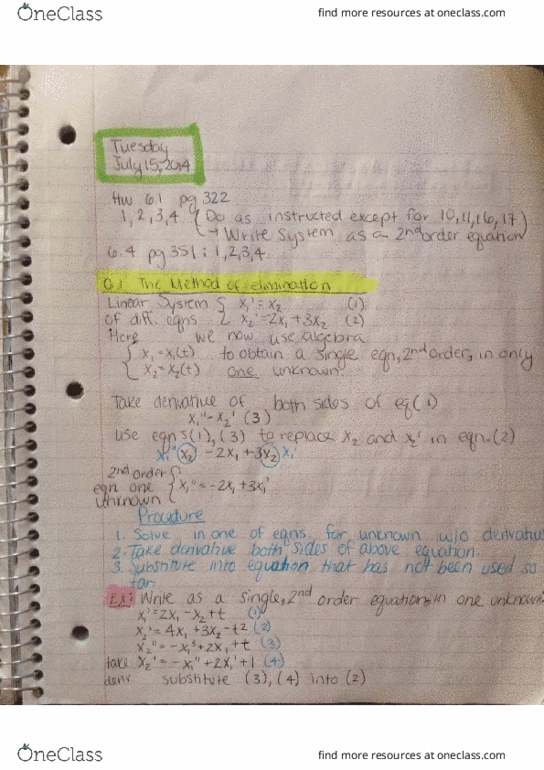 OneClass find more resources at oneclass.com
Tuesday
July 15, 2014
HW 6.1 pg 322
1, 2, 3, 4 (Do as instructed except for 10, 11, 16, 17)
→ Write System as a 2nd order equation
6.4 pg 351: 1, 2, 3, 4
6.1 The Method of elimination
Linear System { x₁' = x₂ (1)
of diff. eqns { x₂' = -2x₁ + 3x₂ (2)
Here we now use algebra
{ x₁ = x₁(t) to obtain a single eqn, 2nd order, in only
{ x₂ = x₂(t) one unknown.
Take derivative of both sides of eq (1)
x₁'' = x₂' (3)
Use eqns (1), (3) to replace x₂ and x₂' in eqn. (2)
x₁'' x₂' - 2x₁ + 3x₂ x₁'
2nd order
eqn one { x₁'' = -2x₁ + 3x₁'
unknown
Procedure
1. Solve in one of eqns. for unknown w/o derivative
2. Take derivative both sides of above equation.
3. Substitute into equation that has not been used so
far.
EX: Write as a single, 2nd order equation, in one unknown.
x₁' = 2x₁ - x₂ + t (1)
x₂' = 4x₁ + 3x₂ - t² (2)
x₂ = -x₁' + 2x₁ + t (3)
take x₂' = -x₁'' + 2x₁' + 1 (4)
deriv substitute (3), (4) into (2)
OneClass find more resources at oneclass.com